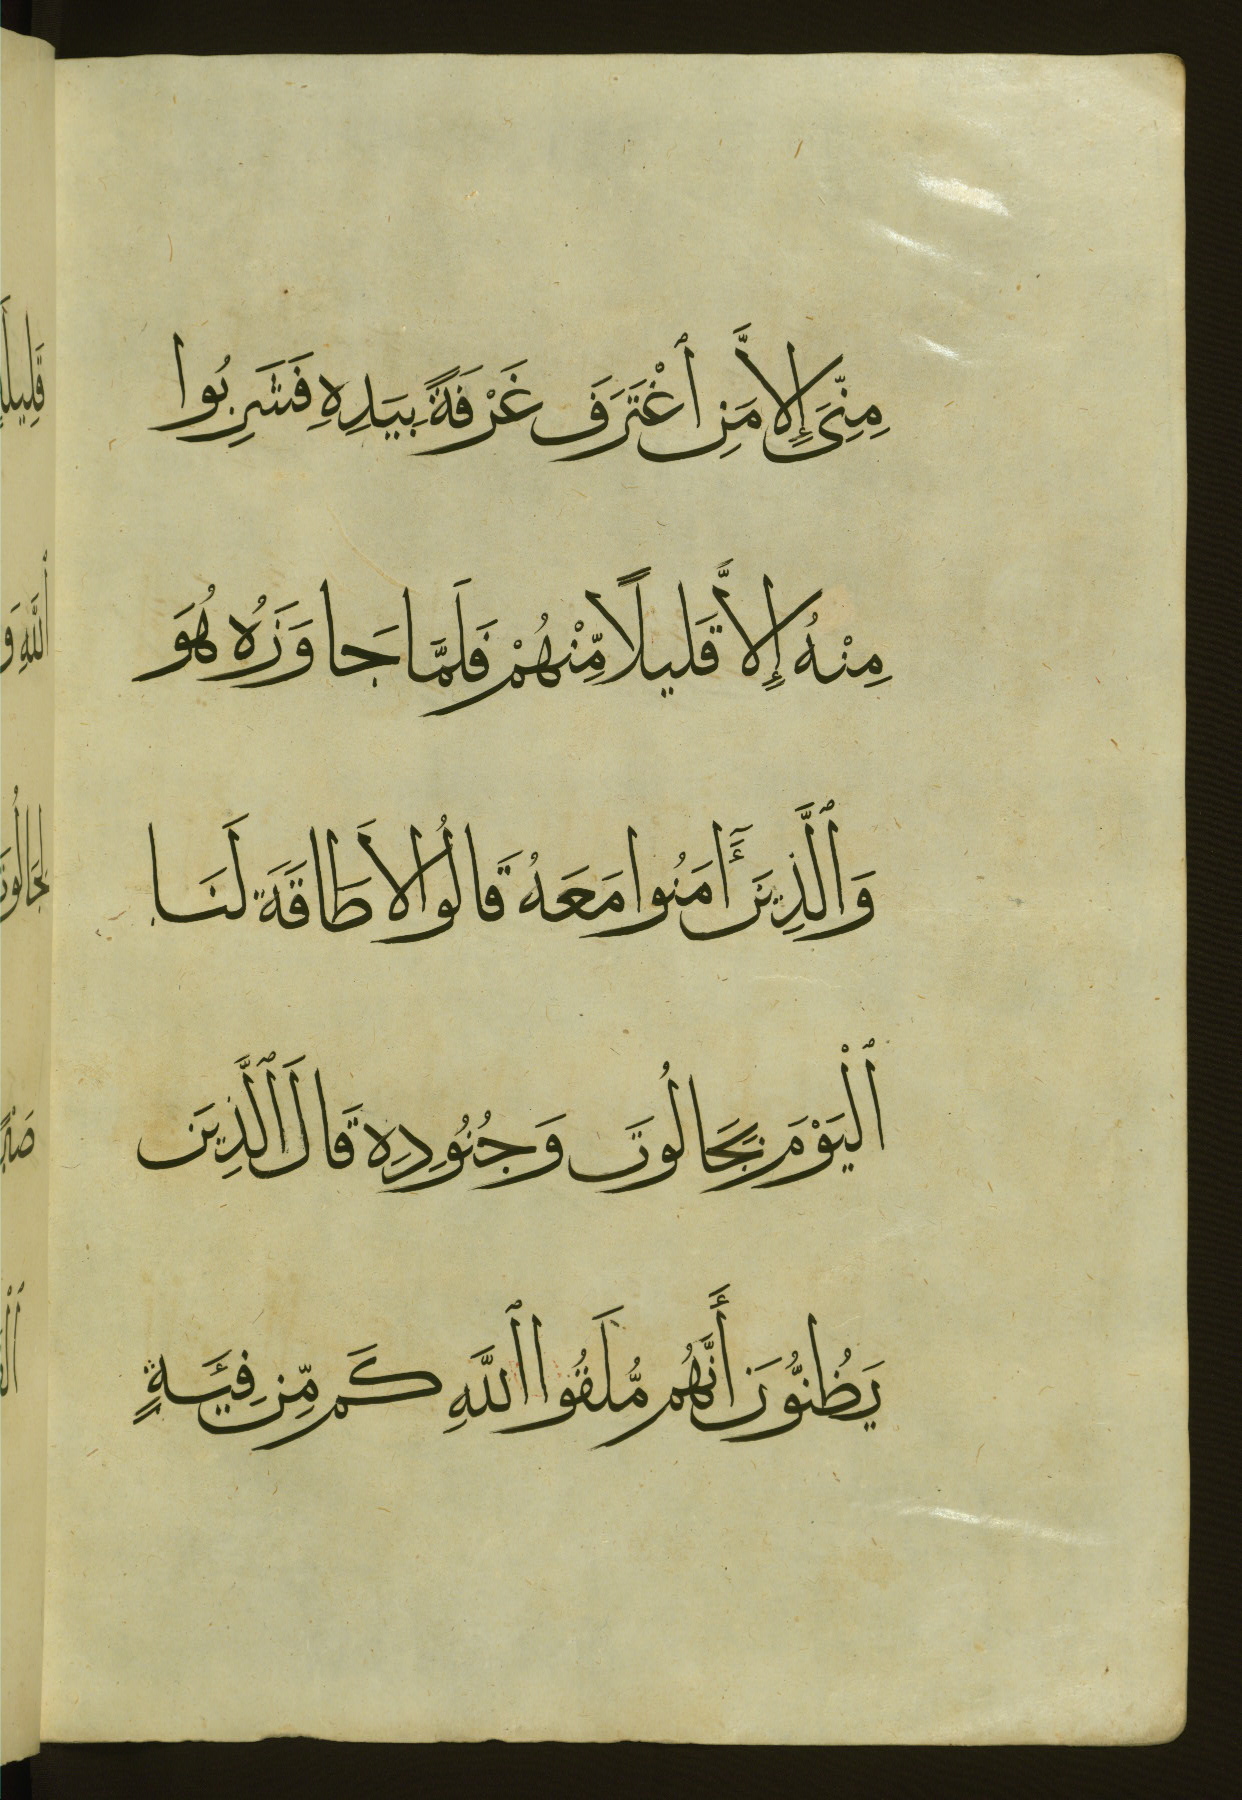 مِنِّىٓ إِلَّا مَنِ ٱغْتَرَفَ غَرْفَةًۢ بِيَدِهِ فَشَرِبُوا
مِنْهُ إِلَّا قَلِيلًا مِّنْهُمْ فَلَمَّا جَاوَزَهُ هُوَ
وَٱلَّذِينَ ءَامَنُوا مَعَهُ قَالُوا لَا طَاقَةَ لَنَا
ٱلْيَوْمَ بِجَالُوتَ وَجُنُودِهِ قَالَ ٱلَّذِينَ
يَظُنُّونَ أَنَّهُم مُّلَقُوا ٱللَّهِ كَم مِّن فِئَةٍ